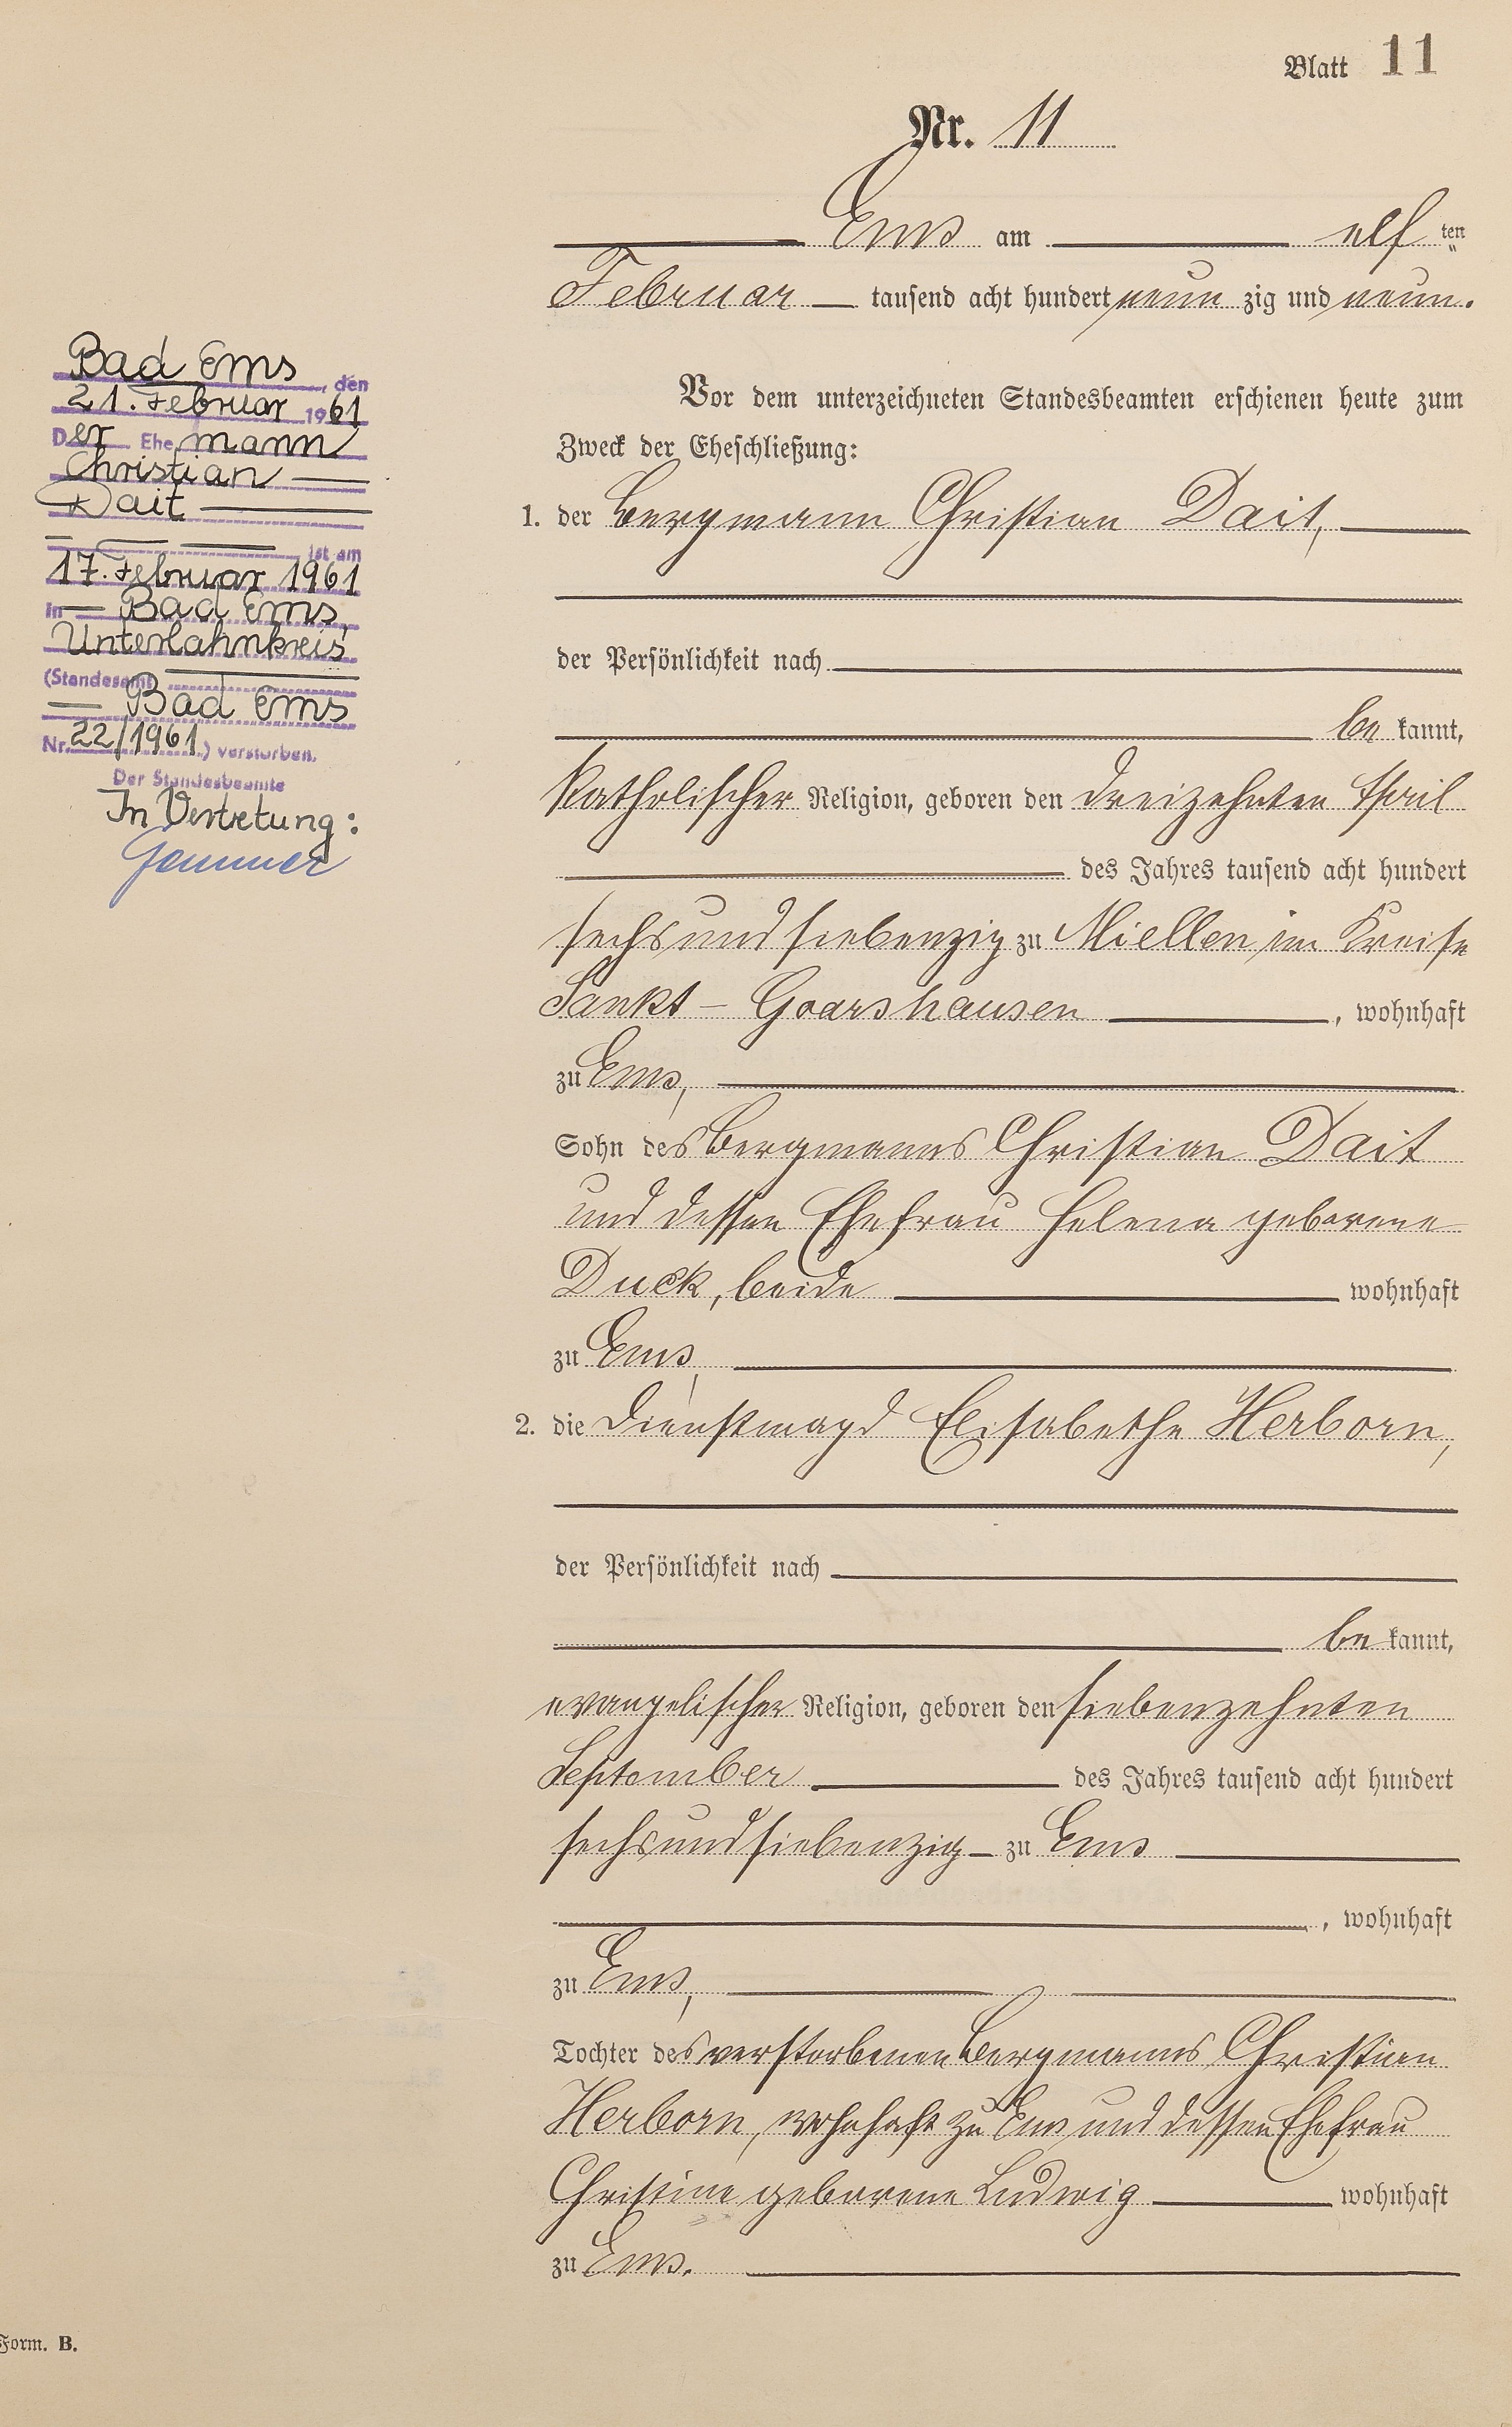 Blatt 11
Nr. 11
Ems am elf ten
Februar tausend acht hundert neun zig und neun.
Vor dem unterzeichneten Standesbeamten erschienen heute zum
Zweck der Eheschließung:
1. der Bergmann Christian Dait,
der Persönlichkeit nach
be kannt,
katholischer Religion, geboren den dreizehnten April
des Jahres tausend acht hundert
sechsundsiebenzig zu Miellen im Kreise
Sankt-Goarshausen, wohnhaft
zu Ems,
Sohn des Bergmanns Christian Dait
und dessen Ehefrau Helena geborene
Duck, beide wohnhaft
zu Ems,
2. die Dienstmagd Elisabethe Herborn,
der Persönlichkeit nach
be kannt,
evangelischer Religion, geboren den siebenzehnten
September des Jahres tausend acht hundert
sechsundsiebenzig zu Ems
, wohnhaft
zu Ems,
Tochter des verstorbenen Bergmanns Christian
Herborn, wohnhaft zu Ems und dessen Ehefrau
Christine geborene Ludwig wohnhaft
zu Ems.
Bad Ems, den
21. Februar 1961
Der Ehemann
Christian
Dait
ist am
17. Februar 1961
in Bad Ems,
Unterlahnkreis
(Standesamt
Bad Ems
Nr. 22/1961) verstorben.
Der Standesbeamte
In Vertretung:
Form. B.